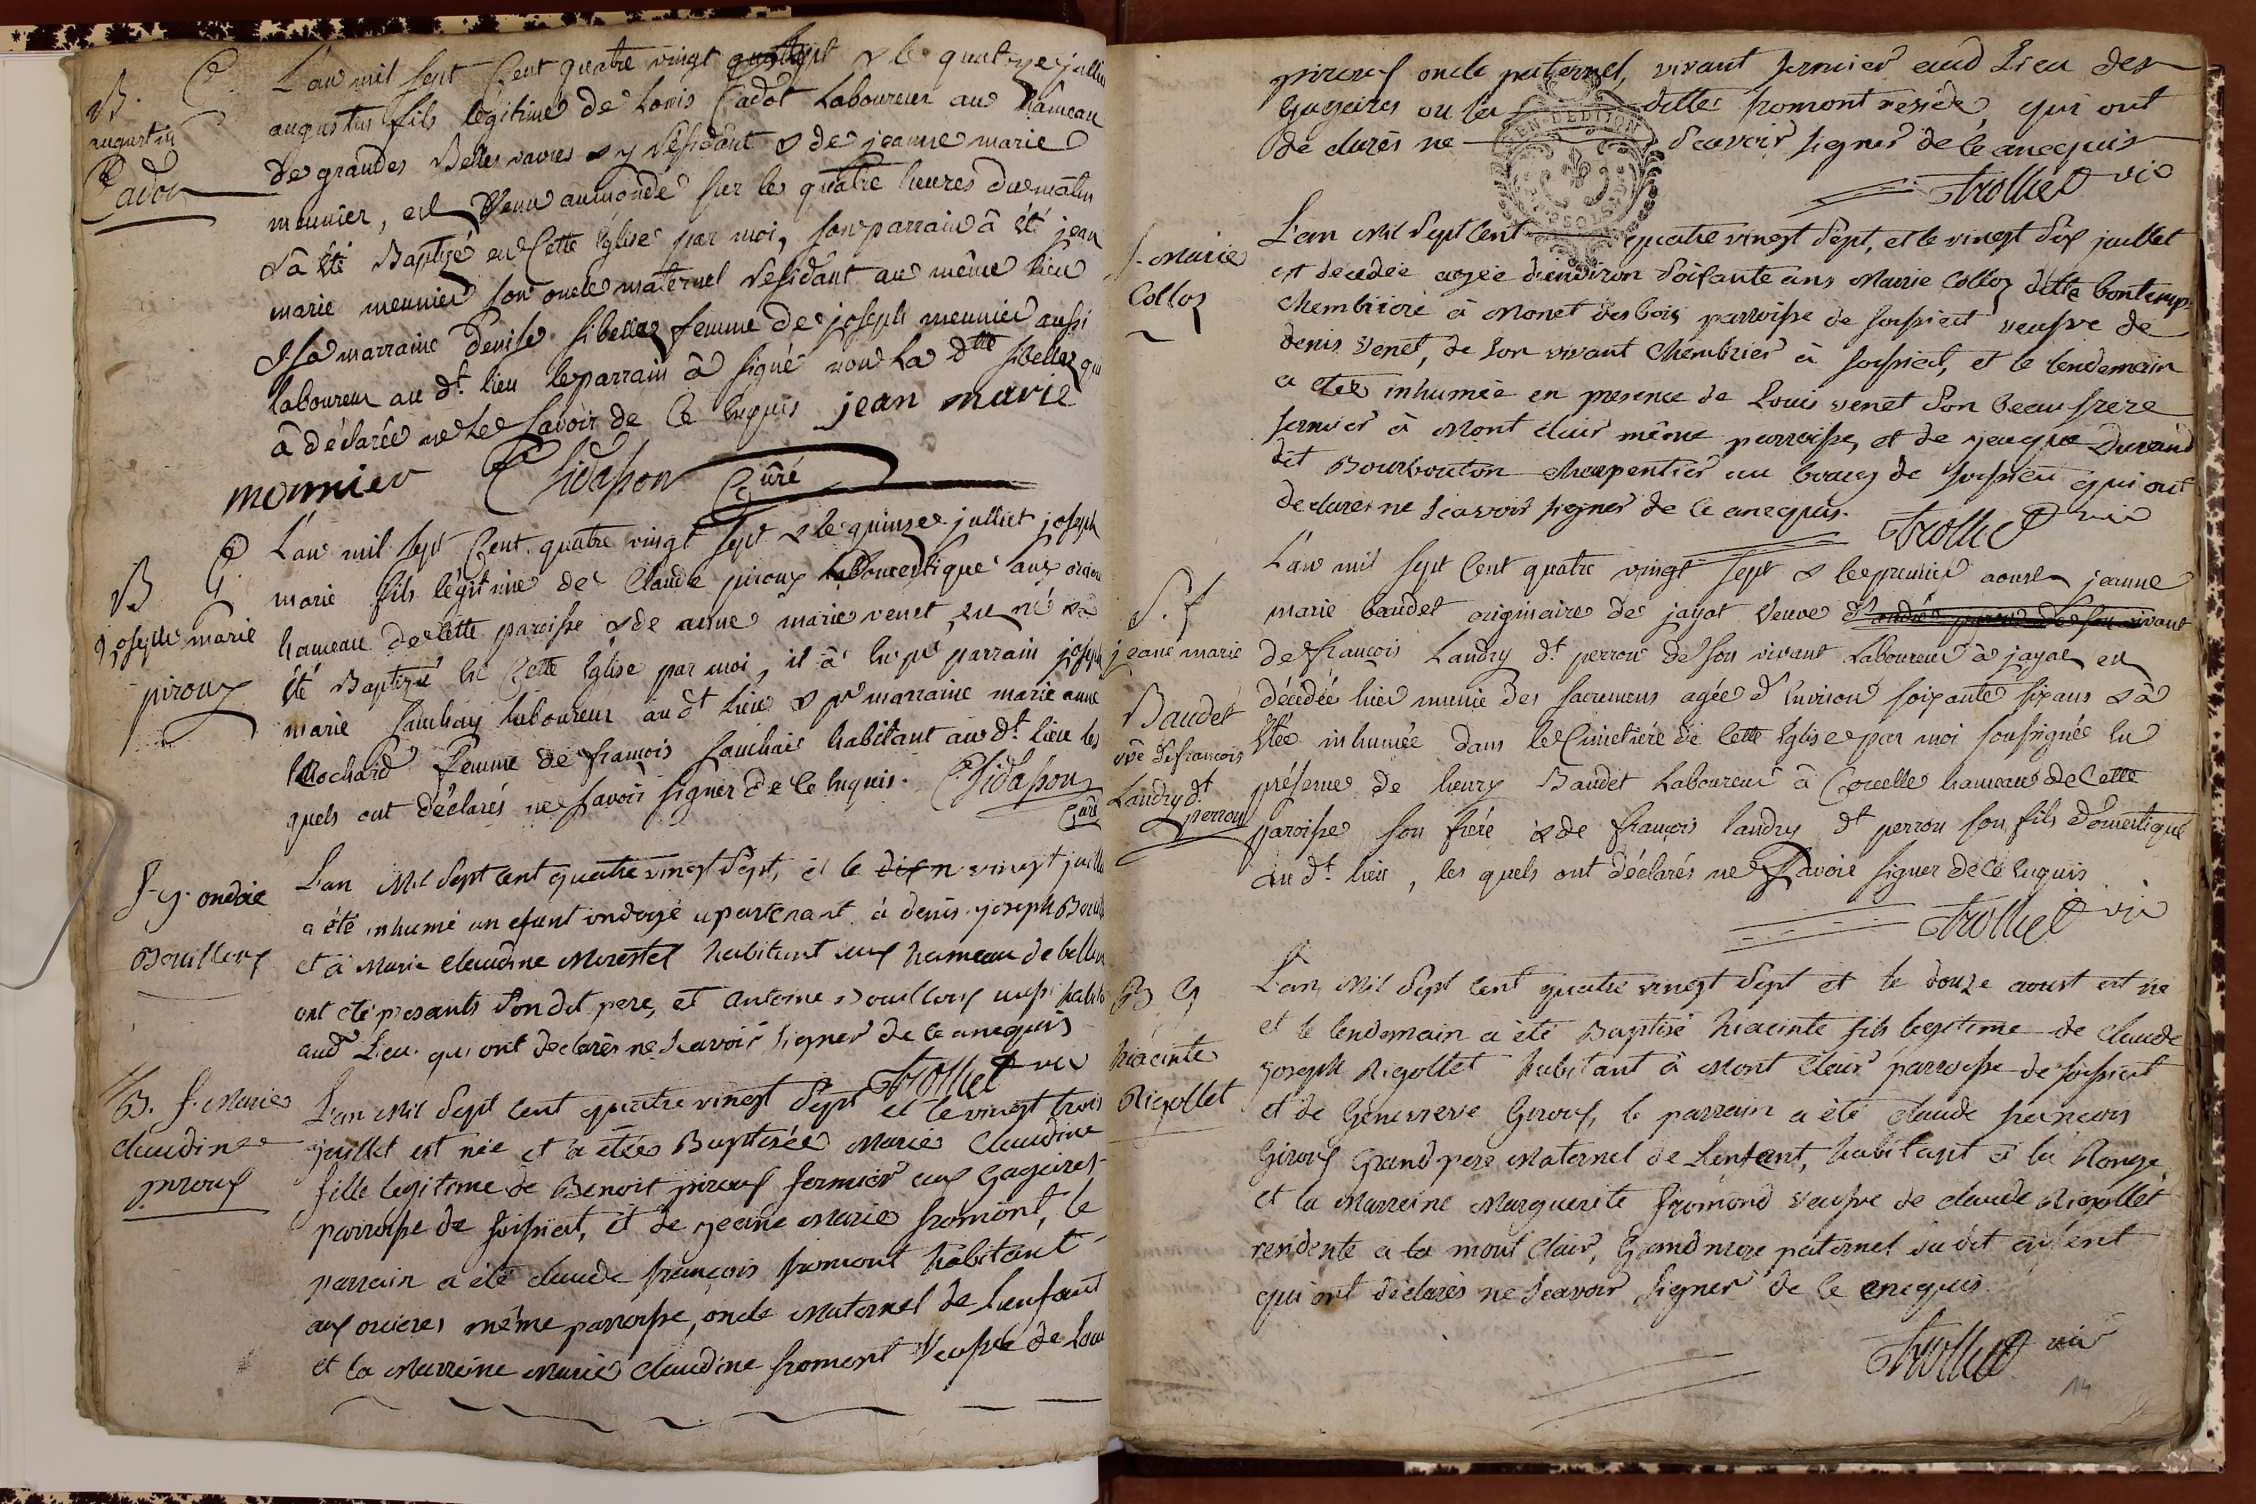 B. G.
augustin
Cadot
L'an mil sept Cent quatre vingt sept & le quatorze juillet
augustin fils légitime de Louis Cadot Laboureur au hâmeau
de grandes Belles vavres & y Résidant & de jeanne marie
meunier, est Venu au monde sur les quatre heures du matin
& â été Baptisé en Cette Eglise par moi, son parrain â été jean
marie meunier son oncle maternel Résidant au même lieu
& sa marraine Denise sibellez femme de joseph meunier aussi
laboureur au dt. lieu le parrain â signé non la dtte sibellez qui
â déclarée ne le savoir de Ce Enquis jean marie
monnier Chidasson Curé
B G.
joseph marie
piroux
L'an mil sept Cent quatre vingt sept & le quinze julliet joseph
marie fils légitime de Claude piroux domestique aux
hameau de Cette paroisse & de anne marie venet, est né & â
été Baptizé En Cette Eglise par moi, il â eu pr parrain joseph
marie sauchay laboureur au dt lieu & pr marraine marie anne
Rochard femme de françois sauchai habitant au dt. lieu les
quels ont déclarés ne savoir signer de Ce Enquis. Chidasson
Curé
S. g. ondoié
Bouilloux
L'an Mil Sept cent quatre vingt Sept, et le vingt juillet
a été inhumé un efant ondoyé apartenant à denis joseph
et à Marie claudine Morestel habitant aux hameau de
ont été presants Son dit pere, et antoine Bouilloux aussi
aud Lieu qui ont declarés ne Scavoir signer de ce anequis
Trolliet vic
B. f. Marie
claudine
piroux
L'an Mil Sept cent quatre vingt Sept et le vingt trois
juillet est née et a étée Baptisée Marie Claudine
fille legitime de Benoit piroux fermier aux Gageires
parroisse de soissiat, et de jeane Marie fromont, le
parrain a été claude françois fromont habitant
aux orcieres même parroisse, oncle Maternel de L'enfant
et la Marreine Marie claudine fromont Veufve de
piroux oncle paternel, vivant fermier aud Lieu des
Gageires ou la ditte fromont reside, qui ont
declarés ne Scavoir signer de ce anequis
Trolliet vic
S. Marie
Colloz
L'an Mil Sept Cent quatre vingt Sept, et le vingt Six juillet
est decedée agée d'environ Soisante ans Marie Colloz ditte bontemps
chembriere à Monet des bois parroisse de soissiat veufve de
denis Venet, de Son vivant Chembrier à soissiat, et le lendemain
a etée inhumée en presence de Louis venet Son beau frere
fermier à Mont clair même parroisse, et de jacque Durand
dit Bourbouton charpentier au bourg de soissiat qui ont
declarés ne Scavoir signer de ce anequis.
Trolliet vic
S. f
jeane marie
Baudet
vve de françois
Landry dt
perron
L'an mil sept Cent quatre vingt sept & le premier aoust jeanne
marie baudet originaire de jayat Veuve
de françois Landry dt perron de son vivant Laboureur à jayat, est
décédée hier munie des sacremens agée d'Environ soixante six ans & â
Etée inhumée dans le Cimetiére de Cette Eglise par moi soussignée En
présence de henry Baudet Laboureur à Corcelle hameau de Cette
paroisse son frére & de françois landry dt perron son fils domestique
au dt. lieu, les quels ont déclarés ne Savoir signer de Ce Enquis
Trolliet vic
B. G
hiacinte
Rigollet
L'an Mil Sept Cent quatre vingt Sept et le douze aoust est né
et le lendemain a été Baptisé hiacinte fils legitime de claude
joseph Rigollet habitant à Mont Clair parroisse de soissiat
et de Genevieve Giroux, le parrain a été claude francois
Giroux Grand pere Maternel de L'enfant, habitant à la Ronge
et la Marreine Marguerite fromond veufve de claude Rigollet
residente à la mont Clair, Grand mere paternel du dit enfent
qui ont declarés ne Scavoir signer de ce enequis
Trolliet vic
14